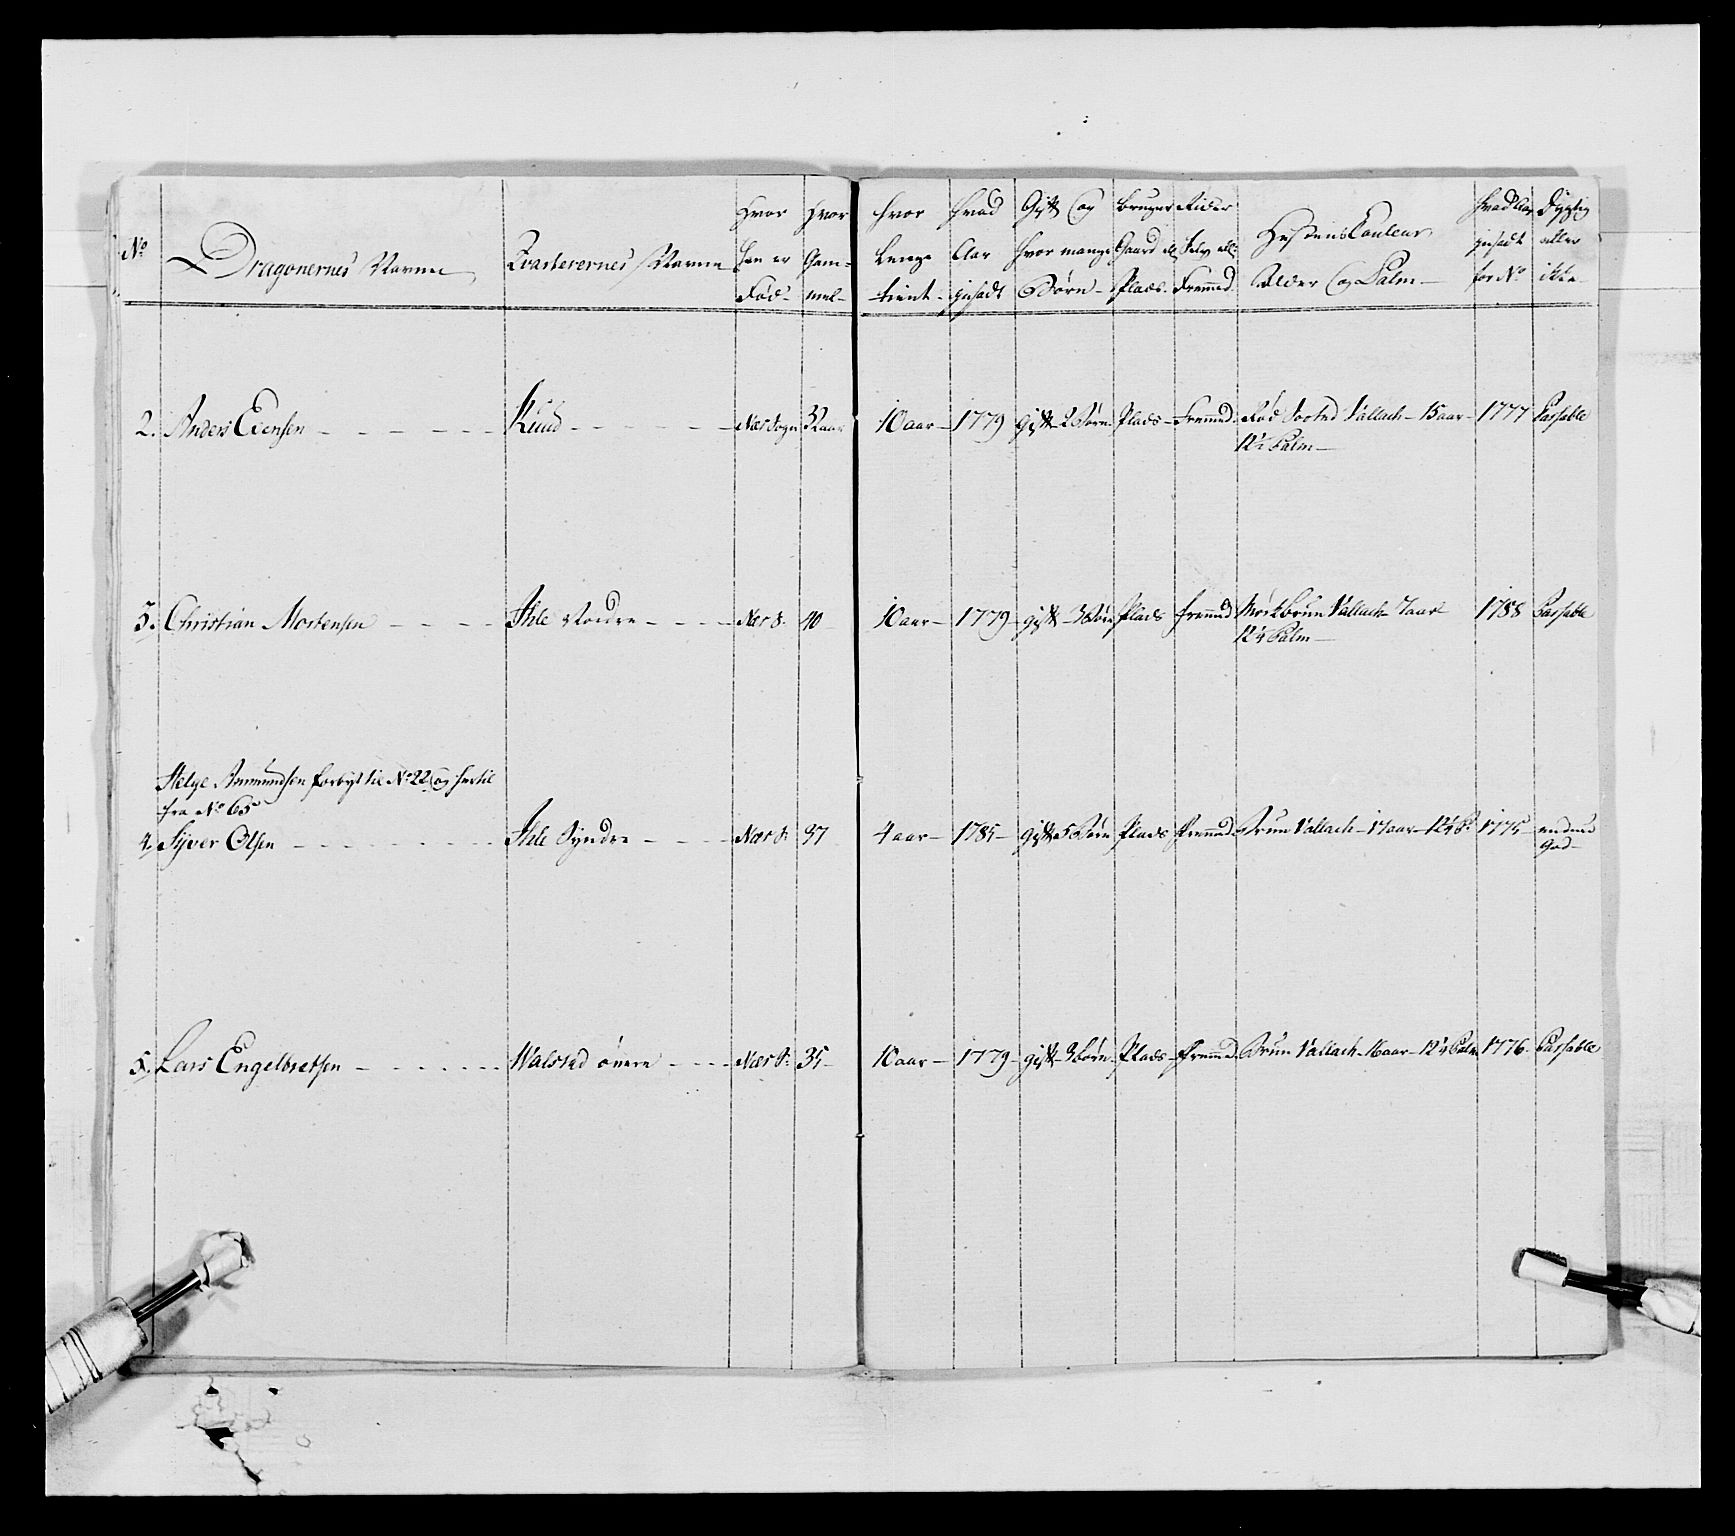 No
Dragonernes Navne
Qvarterernes Navne
Hvor han er Fød
Hvor Gammel
Hvor Lenge tient
Hvad Aar giesadt
Gift og Hvor mange Børn
Bruger Gaard ell Plads
Rider Selv ell: Fremmed
Hestens Couleur Alder og Palm
Hvad Aar giesadt for No
Dygtig eller ikke
2. Anders Evensen Ruud Næs Sogn 32 aar 10 aar 1779 gift 2 Børn Plads Fremmed Rød Vallach 15 aar 1777 Passable
12½ Palm
3. Christian Mortensen Ihle Nordre Næs S: 40 10 aar 1779 gift 3 Børn Plads fremmed Mørkbrun Vallach 7 aar 1788 Passable
12¼ Palm
Helge Ammundsen forbyt til No 22 og hertil
fra No 65
4. Syver Olsen Ihle Syndre Næs S: 37 4 aar 1785 gift 5 Børn Plads Fremmed Brun Vallach 17 aar 12¼ P: 1775 endnu
god
5. Lars Engelbretsen Walstad øvere Næs S: 35 10 aar 1779 gift 3 Børn Plads Fremmed Brun Vallach 16 aar 12¼ Palm 1776 Passable